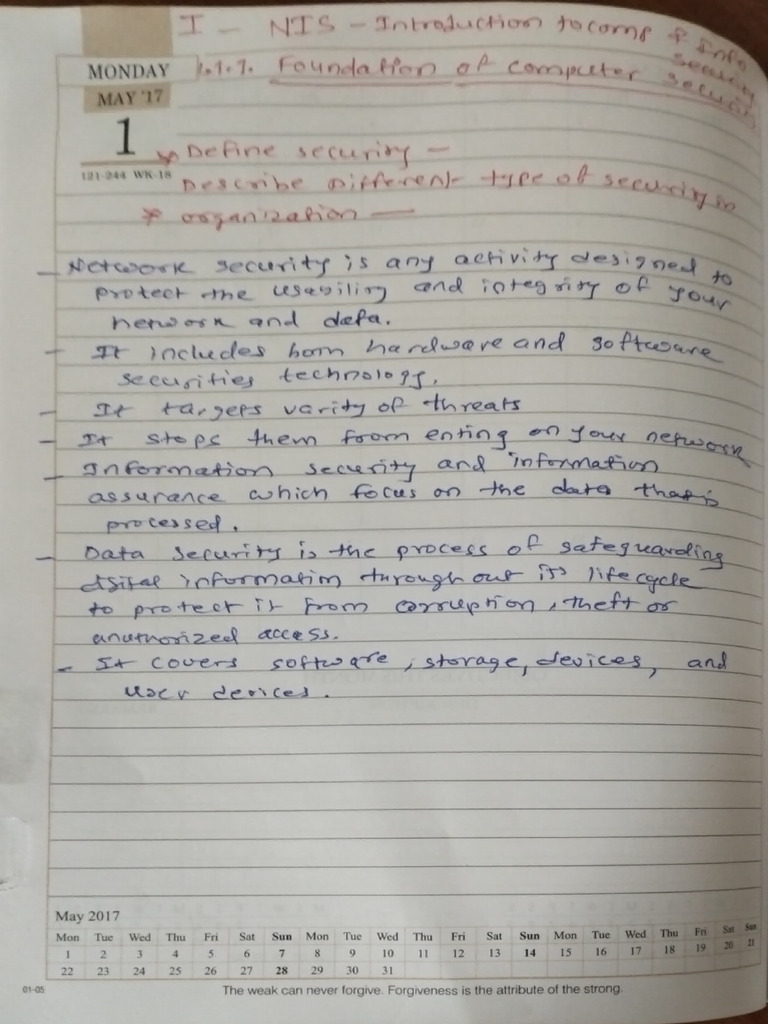 I - NIS - Introduction to comp & Info
security
MONDAY
1.1.1. Foundation of computer security
MAY '17
1
* Define security -
121-244 WK-18
Describe Different type of security in
* organization -
- Network security is any activity designed to
protect the usability and integrity of your
network and data.
- It includes both hardware and software
securities technology.
- It targets varity of threats
- It stops them from enting on your network
- Information security and information
assurance which focus on the data that is
processed.
- Data security is the process of safeguarding
dsital information through out its life cycle
to protect it from corruption, theft or
anuthorized access.
- It covers software, storage, devices, and
user devices.
May 2017
Mon Tue Wed Thu Fri Sat Sun Mon Tue Wed Thu Fri Sat Sun Mon Tue Wed Thu Fri Sat Sun
1 2 3 4 5 6 7 8 9 10 11 12 13 14 15 16 17 18 19 20 21
22 23 24 25 26 27 28 29 30 31
01-05
The weak can never forgive. Forgiveness is the attribute of the strong.